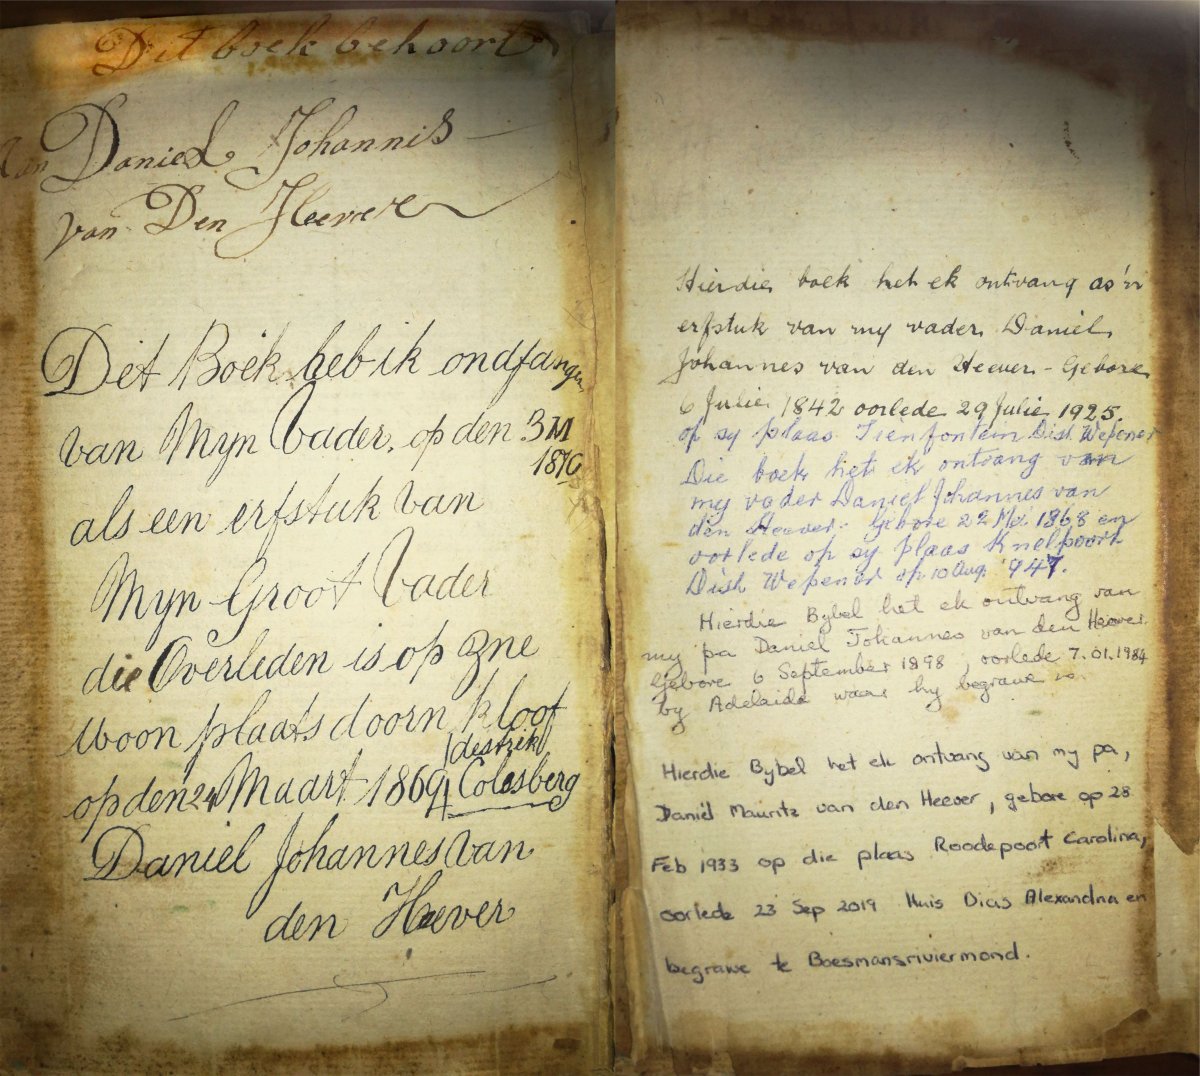 Dit boek behoort
Van Daniel Johannis
van Den Heever
Dit Boek heb ik ondfangen
van Mijn Vader. op den 3 M
1876
als een erfstuk van
Myn Groot Vader
die Overleden is op Zne
woon plaats doorn kloof
destrik
op den 24 Maart 1869 Colesberg
Daniel Johannes van
den Heever
Hierdie boek het ek ontvang as 'n
erfstuk van my vader Daniel
Johannes van den Heever - Gebore
6 Julie 1842 oorlede 29 Julie 1925.
op sy plaas Tienfontein Dist. Wepener
Die boek het ek ontvang van
my vader Daniel Johannes van
den Heever - Gebore 22 Mei 1868 en
oorlede op sy plaas Knelpoort
Dist. Wepener op 10 Aug. 947.
Hierdie Bybel het ek ontvang van
my pa Daniel Johannes van den Heever.
Gebore 6 September 1898, oorlede 7.01.1984
by Adelaide waar hy begrawe is
Hierdie Bybel het ek ontvang van my pa,
Daniël Mauritz van den Heever, gebore op 28
Feb 1933 op die plaas Roodepoort Carolina,
oorlede 23 Sep 2019 Huis Dias Alexandria en
begrawe te Boesmansriviermond.